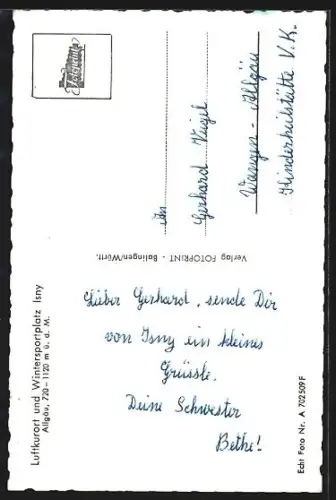 Luftkurort und Wintersportplatz Isny
Allgäu, 720–1120 m ü. d. M.
Lieber Gerhard, sende Dir
von Isny ein kleines
Grüssle.
Deine Schwester
Bethe!
Echt Foto Nr. A 702509F
Verlag FOTOPRINT · Balingen/Württ.
An
Gerhard
Wangen - Allgäu
Kinderheilstätte V.K.